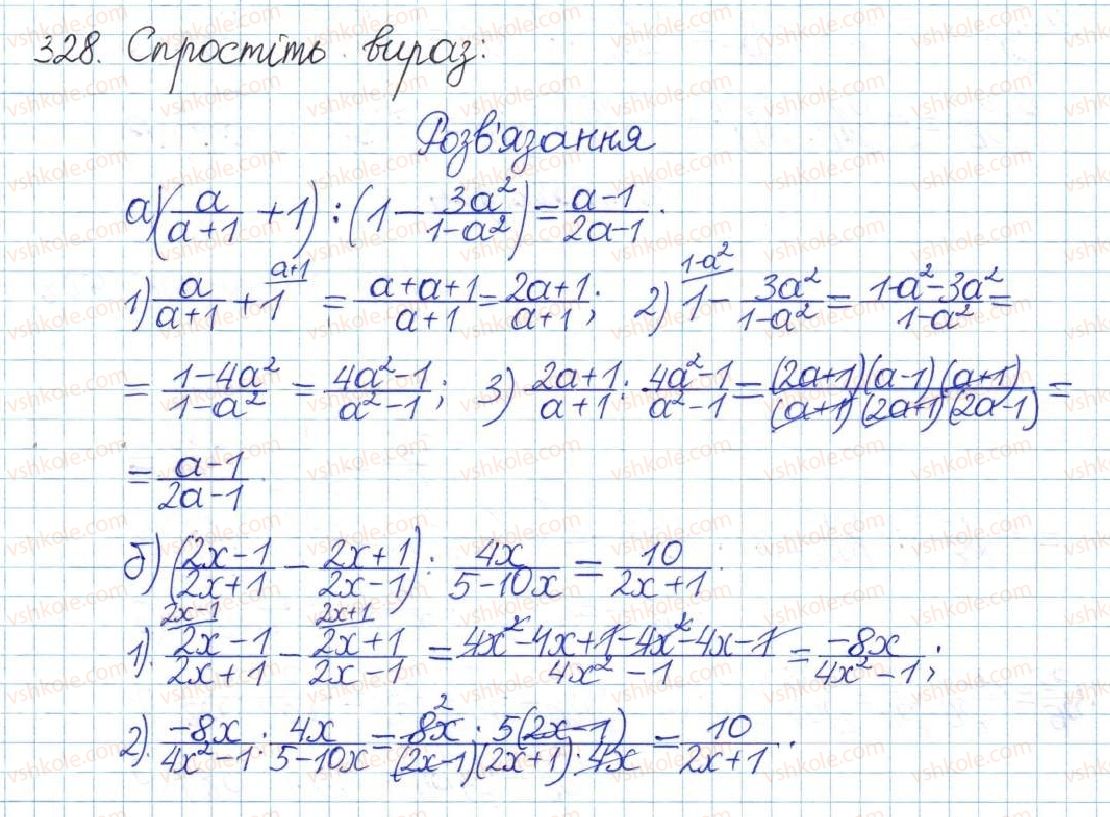 328. Спростіть вираз:
Розв'язання
а) (a/(a+1) + 1) : (1 − 3a²/(1−a²)) = (a−1)/(2a−1).
1) a/(a+1) + 1^(a+1) = (a+a+1)/(a+1) = (2a+1)/(a+1); 2) 1^(1−a²) − 3a²/(1−a²) = (1−a²−3a²)/(1−a²) =
= (1−4a²)/(1−a²) = (4a²−1)/(a²−1); 3) (2a+1)/(a+1) : (4a²−1)/(a²−1) = (2a+1)(a−1)(a+1)/((a+1)(2a+1)(2a−1)) =
= (a−1)/(2a−1)
б) ((2x−1)/(2x+1) − (2x+1)/(2x−1)) : 4x/(5−10x) = 10/(2x+1).
1). (2x−1)^(2x−1)/(2x+1) − (2x+1)^(2x+1)/(2x−1) = (4x²−4x+1−4x²−4x−1)/(4x²−1) = −8x/(4x²−1);
2). −8x/(4x²−1) : 4x/(5−10x) = 8x² · 5(2x−1)/((2x−1)(2x+1)·4x) = 10/(2x+1).
vshkole.com